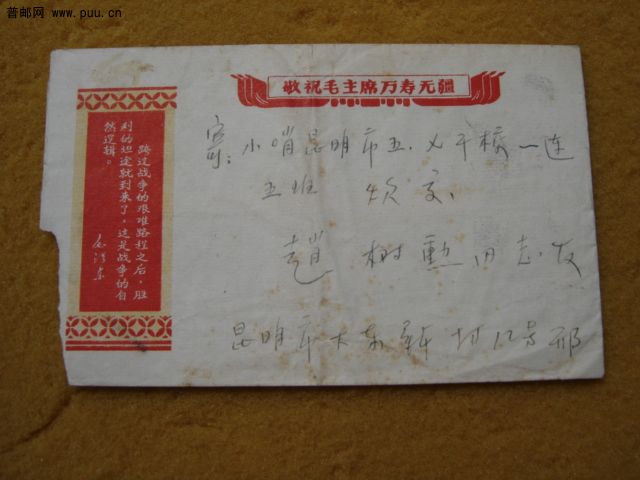 普邮网 www.puu.cn
敬祝毛主席万寿无疆
跨过战争的艰难路程之后，胜
利的坦途就到来了，这是战争的自
然逻辑。
毛泽东
寄：小哨昆明市五.七干校一连
五班 烦交
赵树勲同志收
昆明市大东 村12号邢